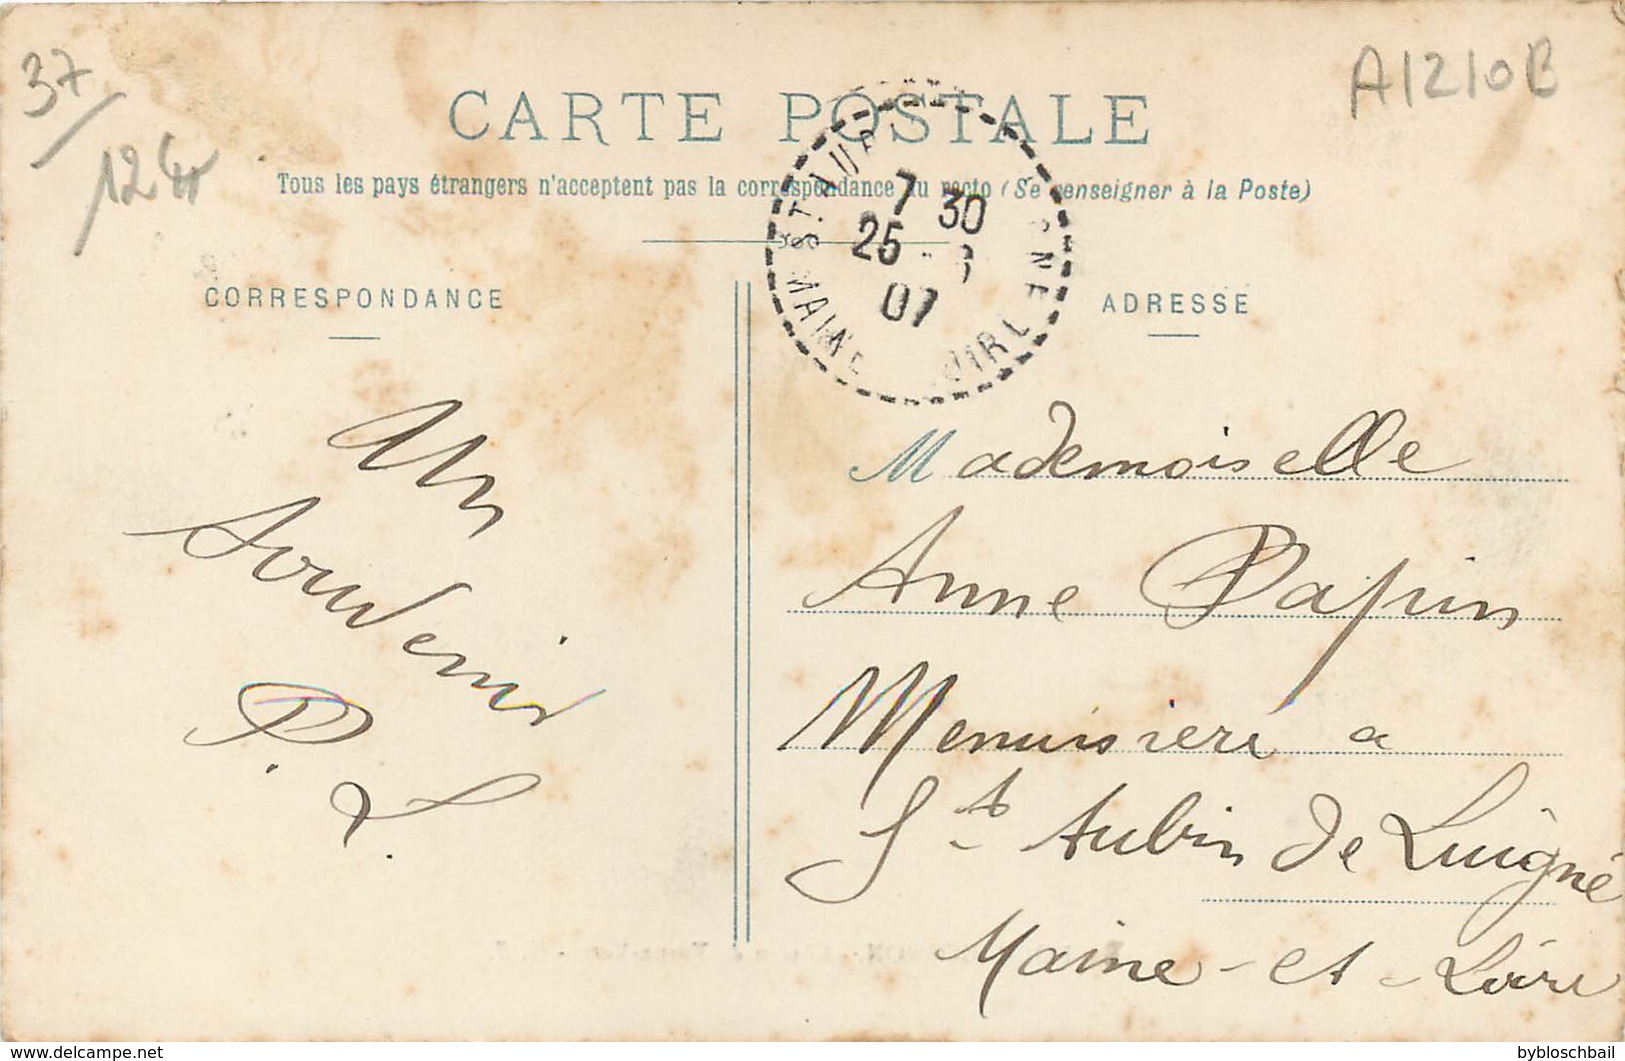 37/
124
A1210B
CARTE POSTALE
Tous les pays étrangers n'acceptent pas la correspondance au recto (Se renseigner à la Poste)
ST AUBI
7 30
25 - 6
07
MAINE
CORRESPONDANCE
ADRESSE
Un
Souvenir
P.
L.
Mademoiselle
Anne Papin
Menuisière a
St Aubin de Luigné
Maine-et-Loire
https://www.delcampe.net
bybloschball